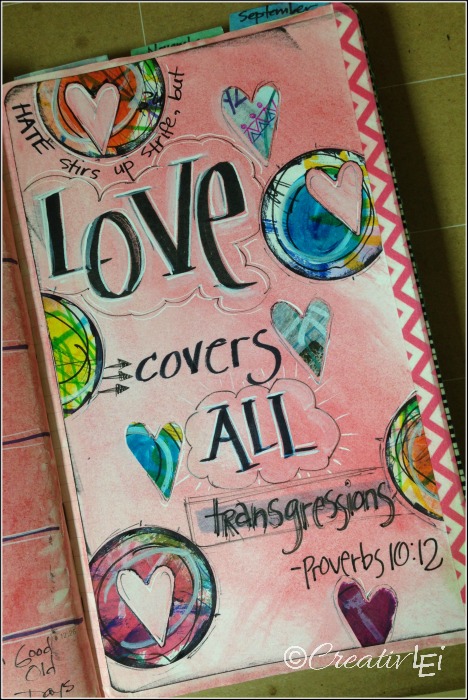 September
HATE stirs up strife, but
LOVE
covers
ALL
transgressions
-Proverbs 10:12
Good
Old
Days
©CreativLEi